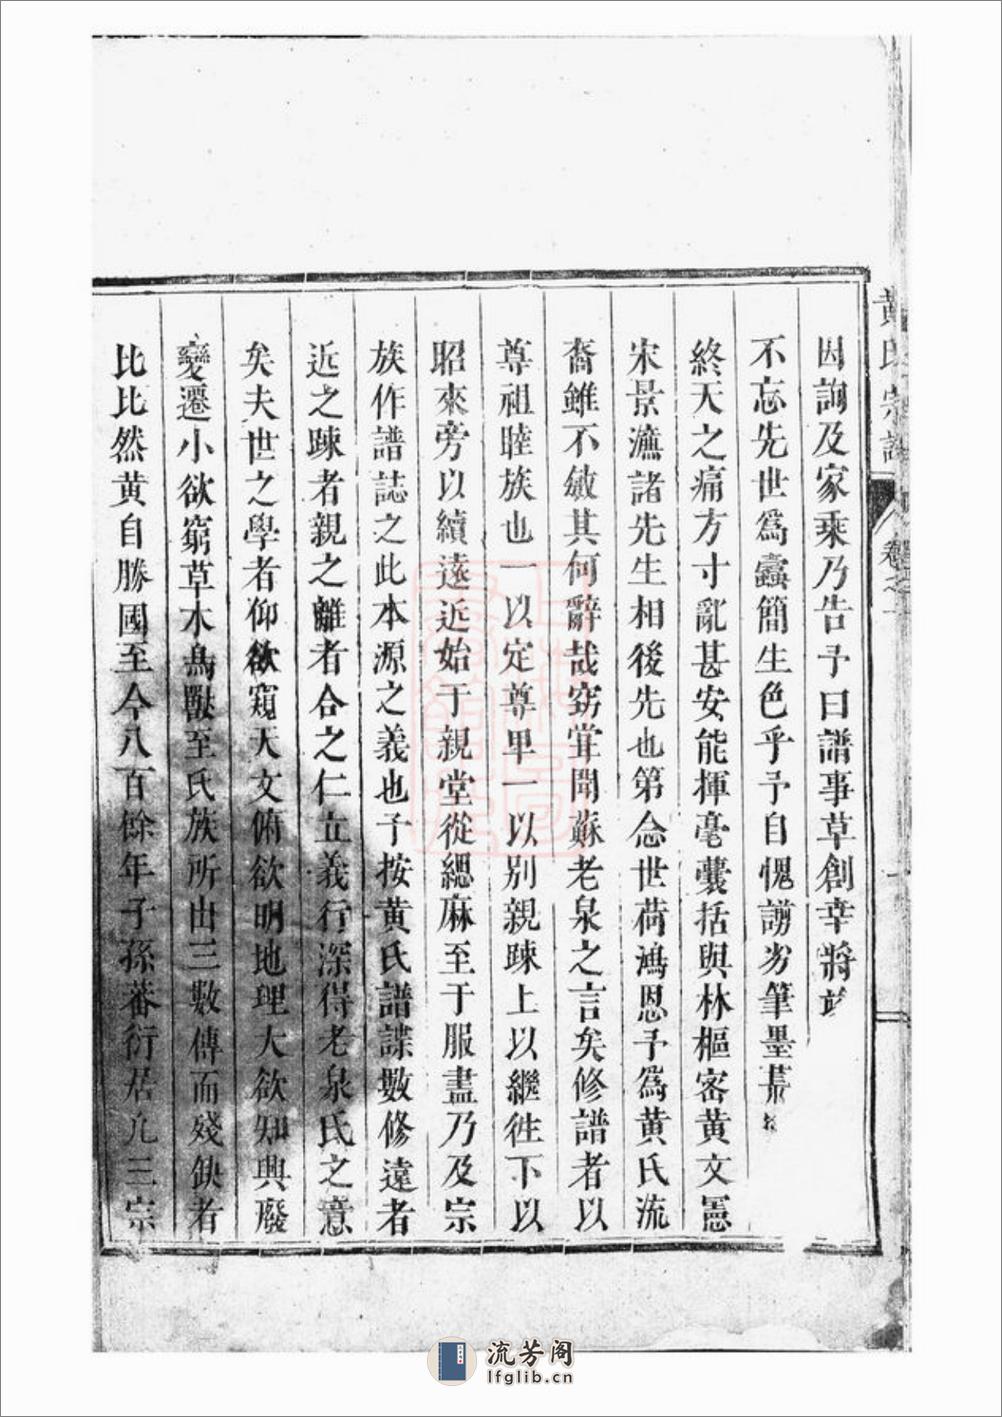 黄氏宗譜 卷之一
因詢及家乘乃告予曰譜事草創幸將竣
不忘先世爲蠹簡生色乎予自愧謭劣筆墨荒
終天之痛方寸亂甚安能揮毫囊括與林樞密黄文憲
宋景濂諸先生相後先也第念世荷鴻恩予爲黄氏流
裔雖不敏其何辭哉竊嘗聞蘇老泉之言矣修譜者以
尊祖睦族也一以定尊卑一以别親踈上以繼徃下以
昭來旁以續遠近始于親堂從緦麻至于服盡乃及宗
族作譜誌之此本源之義也予按黄氏譜諜數修遠者
近之踈者親之離者合之仁立義行深得老泉氏之意
矣夫世之學者仰欲窺天文俯欲明地理大欲知興廢
變遷小欲窮草木鳥獸至氏族所出三數傳而殘缺者
比比然黄自勝國至今八百餘年子孫蕃衍居凡三宗
上海圖書館藏
流芳阁
lfglib.cn